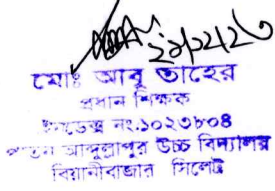 ২৮/১২/২৩
মোঃ আবু তাহের
প্রধান শিক্ষক
ইনডেক্স নং-১০২৩৮০৪
আব্দুল্লাপুর উচ্চ বিদ্যালয়
বিয়ানীবাজার সিলেট